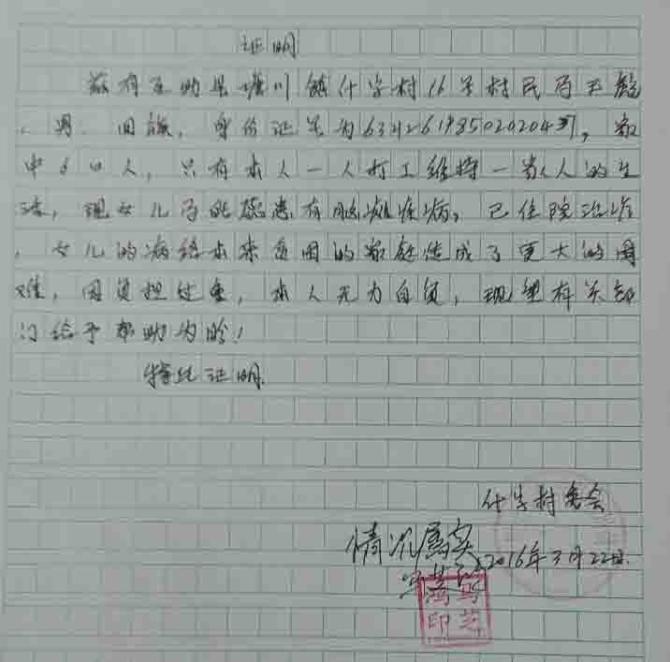 证明
兹有互助县塘川镇什字村16号村民马玉
、男、回族,身份证号为632126198502020437,家
中6口人,只有本人一人打工维持一家人的生
活,现女儿马 患有脑瘫疾病,已住院治疗
,女儿的病给本来贫困的家庭造成了更大的困
难,因负担过重,本人无力自负,现望有关部
门给予帮助为盼!
特此证明
什字村委会
情况属实
2016年3月22日
马
印芝